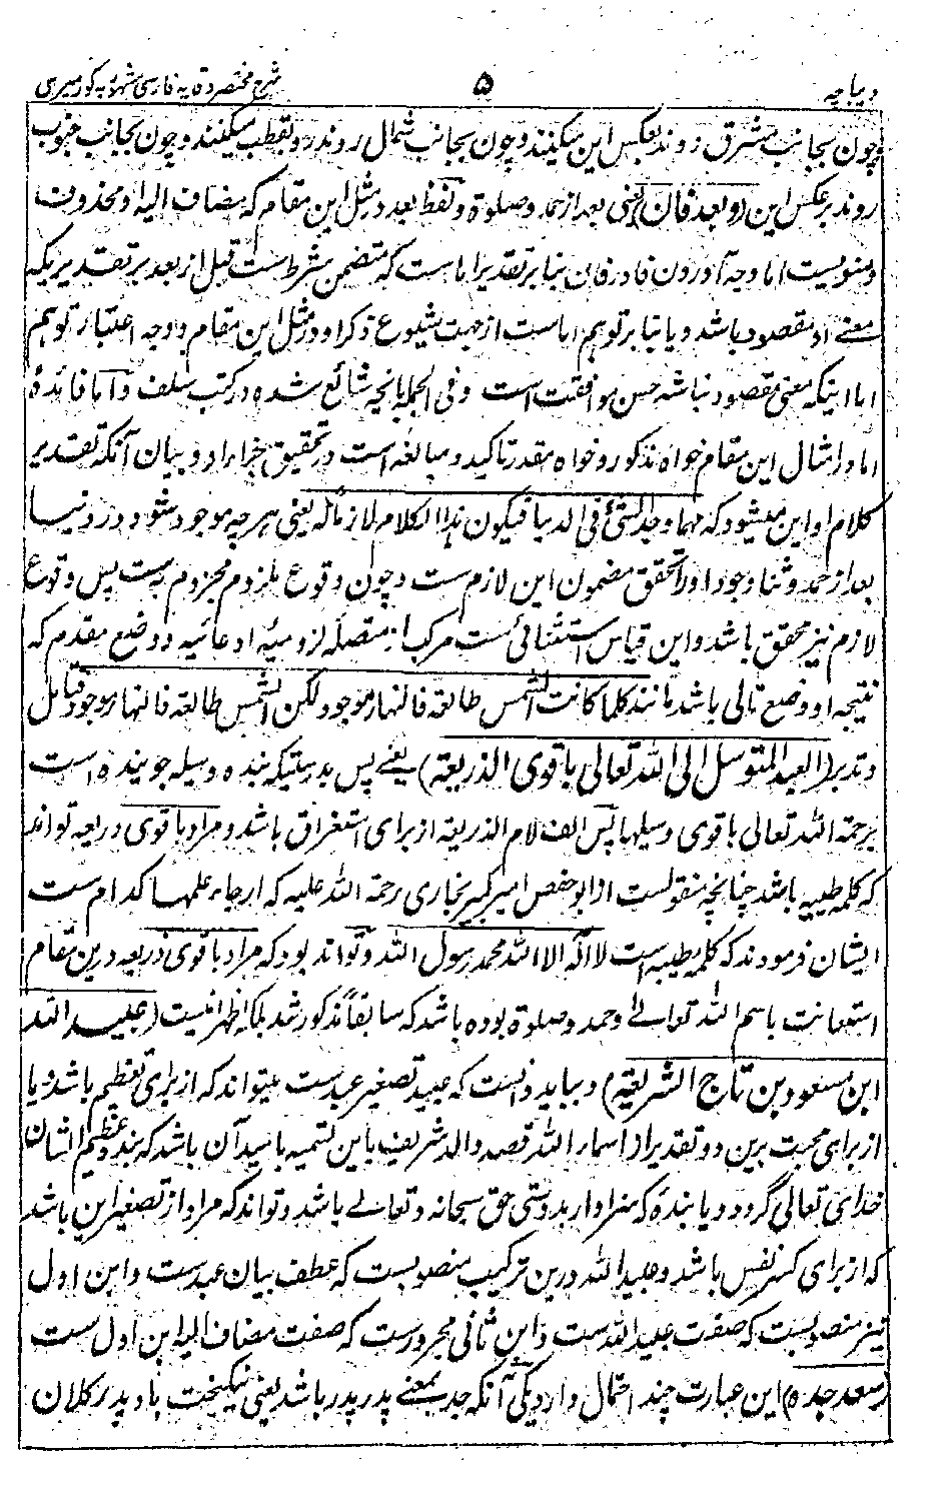 دیباچه ۵ شرح مختصر وقایه فارسی مشهور به کورمیری
چون بجانب مشرق روند بعکس این میکنند و چون بجانب شمال روند رو بقطب میکنند و چون بجانب جنوب
روند بر عکس این (و بعد فان) یعنی بعد از حمد و صلوة و لفظ بعد در مثل این مقام که مضاف الیه او محذوف
و منویست اما وجه آوردن فا در فان بنا بر تقدیر اما است که متضمن شرط است قبل از بعد بر تقدیریکه
معنے او مقصود باشد و یا بنا بر توهم اما ست از جهت شیوع ذکر او در مثل این مقام و وجه اعتبار توهم
اما اینکه معنی مقصود نباشد حسن موافقت است و فی الجمله بانچه شائع شده در کتب سلف و اما فائدهٔ
اما در امثال این مقام خواه مذکور و خواه مقدر تاکید و مبالغه است در تحقیق جزا مراد و بیان آنکه تقدیر
کلام او این میشود که مهما وجد الشئ فی الدنیا فیکون هذا الکلام لازما له یعنی هر چه موجود شود در دنیا
بعد از حمد و ثنا وجود او را تحقق مضمون این لازم ست و چون وقوع ملزوم مجزوم به ست پس وقوع
لازم نیز محقق باشد و این قیاس استثنائی ست مرکب از متصله لزومیه ادعائیه و وضع مقدم که
نتیجه او وضع تالی باشد مانند کلما کانت الشمس طالعة فالنهار موجود لکن الشمس طالعة فالنهار موجود فتامل
و تدبر (العبد المتوسل الی الله تعالی باقوی الذریعة) یعنے پس بدرستیکه بنده وسیله جوینده است
برحمة الله تعالی باقوی وسیلها پس الف لام الذریعه از برای استغراق باشد و مراد باقوی ذریعه تواند
که کلمه طیبه باشد چنانچه منقولست از ابو حفص امیر کبیر بخاری رحمة الله علیه که ارجاء علمها کدام ست
ایشان فرمودند که کلمه طیبه است لا اله الا الله محمد رسول الله و تواند بود که مراد باقوی ذریعه درین مقام
استعانت باسم الله تعالے و حمد و صلوة بوده باشد که سابقاً مذکور شد بلکه اظهر اینست (عبید الله
ابن مسعود بن تاج الشریعة) و بباید دانست که عبید تصغیر عبد ست میتواند که از برای تعظیم باشد و یا
از برای محبت برین دو تقدیر از اسماء الله قصد والد شریف باین تسمیه باسید آن باشد که بنده عظیم الشان
خدای تعالی گردد و یا بندهٔ که سزاوار بدوستی حق سبحانه و تعالے باشد و تواند که مراد از تصغیر این باشد
که از برای کسر نفس باشد و عبید الله درین ترکیب منصوبست که عطف بیان عبد ست و ابن اول
نیز منصوبست که صفت عبید الله ست و ابن ثانی مجرور ست که صفت مضاف الیه ابن اول ست
(سعد جده) این عبارت چند احتمال دارد یکی آنکه جد بمعنے پدر پدر باشد یعنی نیکبخت باد پدر کلان